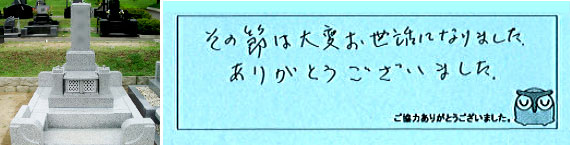 その節は大変お世話になりました.
ありがとうございました.
ご協力ありがとうございました。